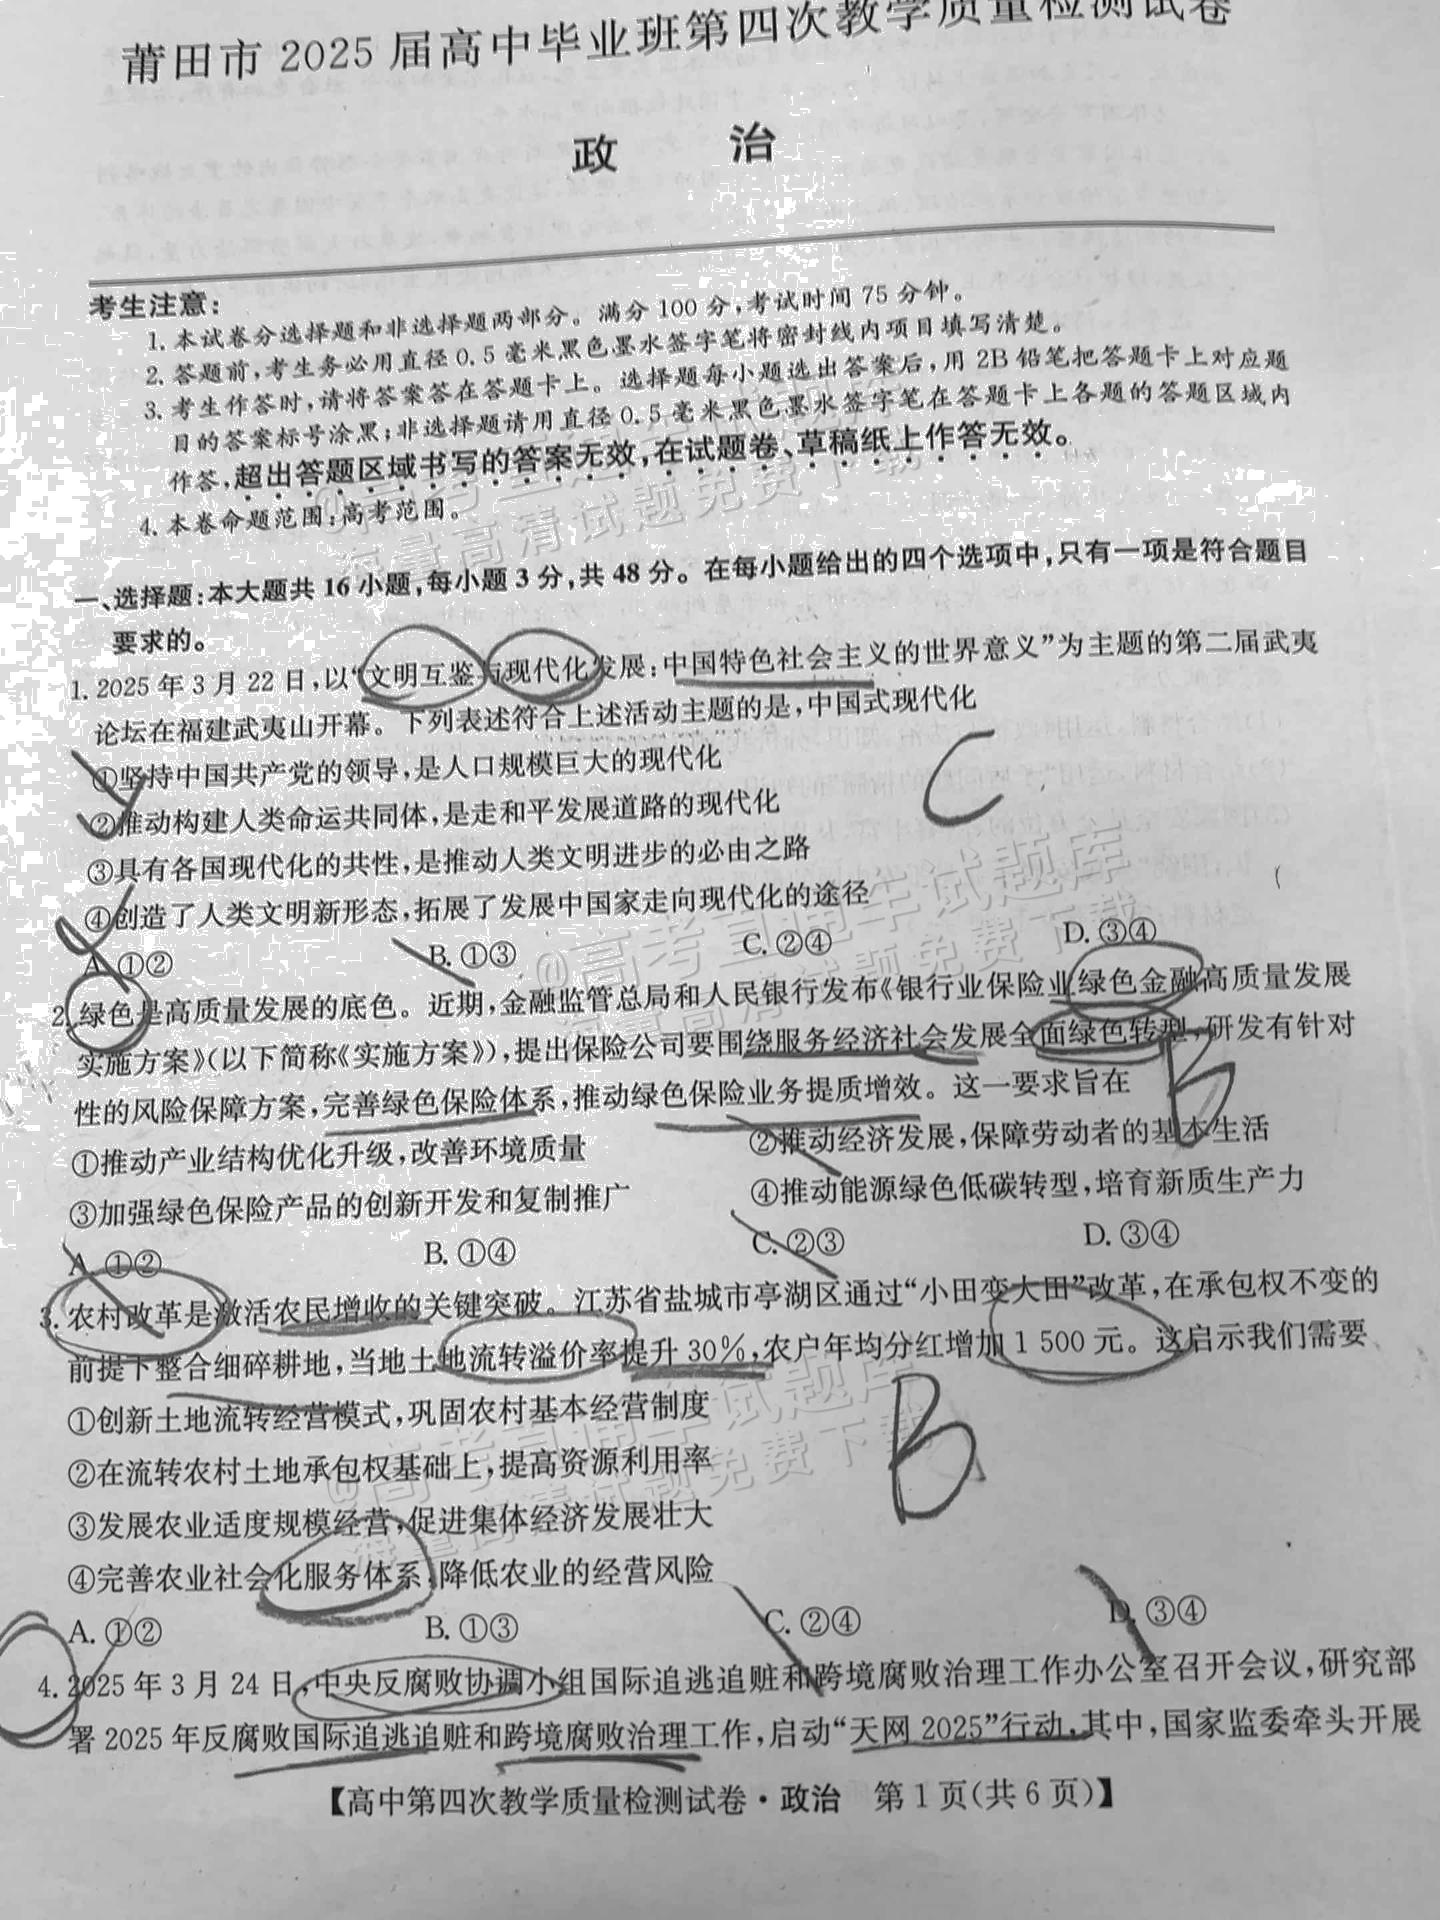 莆田市 2025 届高中毕业班第四次教学质量检测试卷
政 治
考生注意:
1. 本试卷分选择题和非选择题两部分。满分 100 分,考试时间 75 分钟。
2. 答题前,考生务必用直径 0.5 毫米黑色墨水签字笔将密封线内项目填写清楚。
3. 考生作答时,请将答案答在答题卡上。选择题每小题选出答案后,用 2B 铅笔把答题卡上对应题
目的答案标号涂黑;非选择题请用直径 0.5 毫米黑色墨水签字笔在答题卡上各题的答题区域内
作答,超出答题区域书写的答案无效,在试题卷、草稿纸上作答无效。
4. 本卷命题范围:高考范围。
一、选择题:本大题共 16 小题,每小题 3 分,共 48 分。在每小题给出的四个选项中,只有一项是符合题目
要求的。
1. 2025 年 3 月 22 日,以“文明互鉴与现代化发展:中国特色社会主义的世界意义”为主题的第二届武夷
论坛在福建武夷山开幕。下列表述符合上述活动主题的是,中国式现代化
①坚持中国共产党的领导,是人口规模巨大的现代化
②推动构建人类命运共同体,是走和平发展道路的现代化
C
③具有各国现代化的共性,是推动人类文明进步的必由之路
④创造了人类文明新形态,拓展了发展中国家走向现代化的途径
A. ①② B. ①③ C. ②④ D. ③④
2. 绿色是高质量发展的底色。近期,金融监管总局和人民银行发布《银行业保险业绿色金融高质量发展
实施方案》(以下简称《实施方案》),提出保险公司要围绕服务经济社会发展全面绿色转型,研发有针对
性的风险保障方案,完善绿色保险体系,推动绿色保险业务提质增效。这一要求旨在
B
①推动产业结构优化升级,改善环境质量 ②推动经济发展,保障劳动者的基本生活
③加强绿色保险产品的创新开发和复制推广 ④推动能源绿色低碳转型,培育新质生产力
A. ①② B. ①④ C. ②③ D. ③④
3. 农村改革是激活农民增收的关键突破。江苏省盐城市亭湖区通过“小田变大田”改革,在承包权不变的
前提下整合细碎耕地,当地土地流转溢价率提升 30%,农户年均分红增加 1 500 元。这启示我们需要
①创新土地流转经营模式,巩固农村基本经营制度
B
②在流转农村土地承包权基础上,提高资源利用率
③发展农业适度规模经营,促进集体经济发展壮大
④完善农业社会化服务体系,降低农业的经营风险
A. ①② B. ①③ C. ②④ D. ③④
4. 2025 年 3 月 24 日,中央反腐败协调小组国际追逃追赃和跨境腐败治理工作办公室召开会议,研究部
署 2025 年反腐败国际追逃追赃和跨境腐败治理工作,启动“天网 2025”行动,其中,国家监委牵头开展
【高中第四次教学质量检测试卷·政治 第 1 页(共 6 页)】
@高考直通车试题库
海量高清试题免费下载
@高考直通车试题库
海量高清试题免费下载
@高考直通车试题库
海量高清试题免费下载